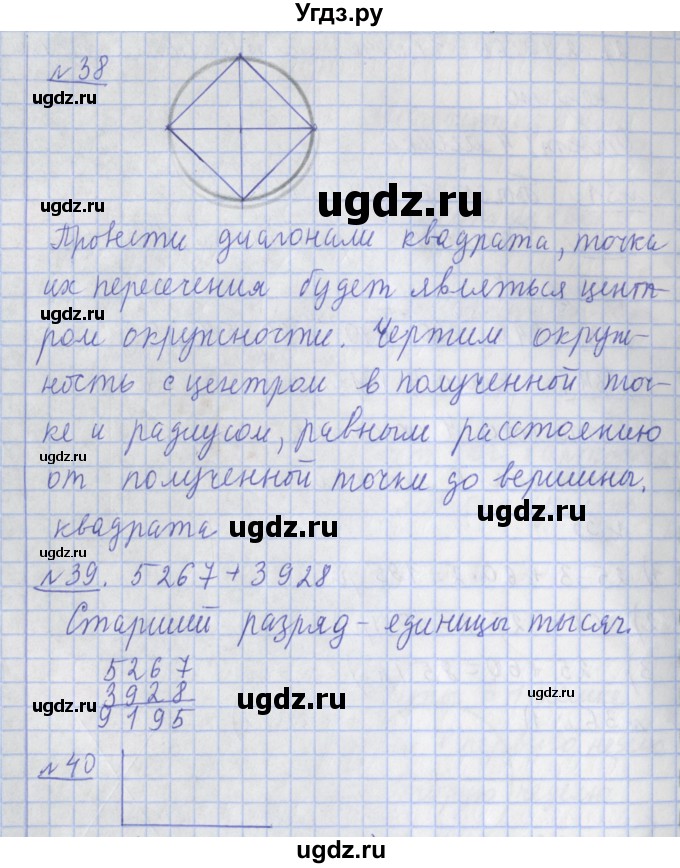 Угдз.ру
№38
ugdz.ru
ugdz.ru
ugdz.ru
Провести диагонали квадрата, точка
их пересечения будет являться цент-
ugdz.ru
ром окружности. Чертим окруж-
ность с центром в полученной точ-
ке и радиусом, равным расстоянию
ugdz.ru
от полученной точки до вершины.
квадрата
ugdz.ru
ugdz.ru
ugdz.ru
№39. 5267+3928
Старший разряд - единицы тысяч.
5267
3928
9195
ugdz.ru
ugdz.ru
ugdz.ru
№40
ugdz.ru
ugdz.ru